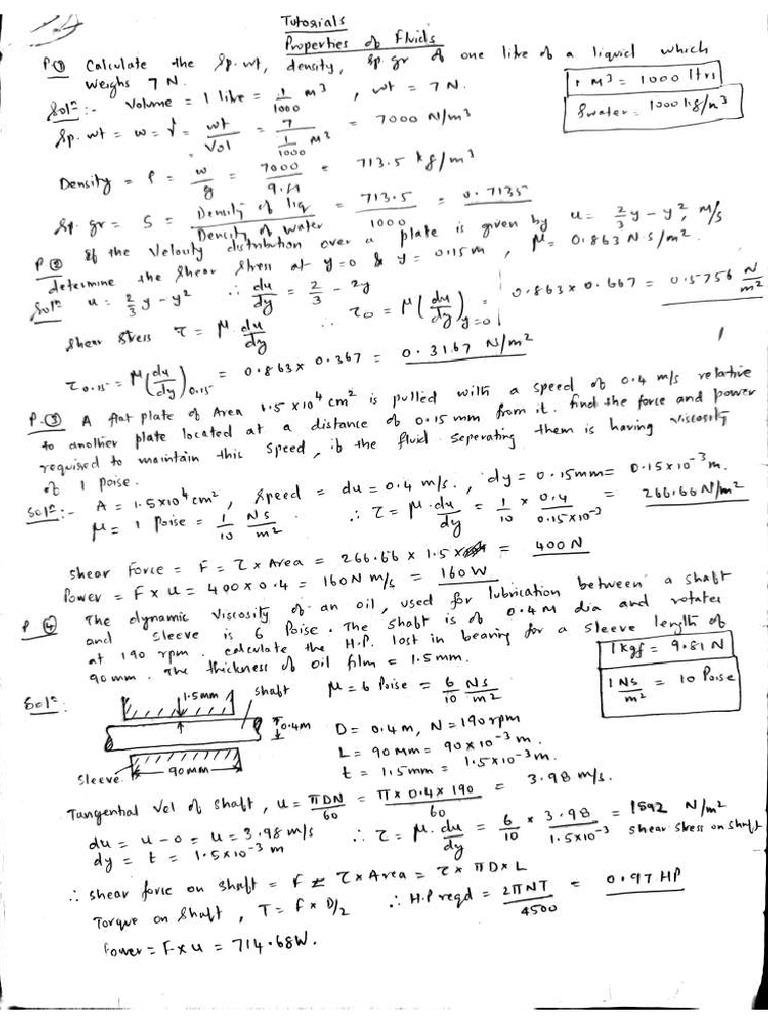 Tutorials
Properties of Fluids
P① Calculate the Sp. wt, density, Sp. gr of one litre of a liquid which
weighs 7 N.
1 M³ = 1000 ltrs
Solⁿ:- Volume = 1 litre = 1/1000 m³, wt = 7 N.
ρwater = 1000 kg/m³
Sp. wt = w = γ = wt/Vol = 7/(1/1000) M³ = 7000 N/m³
Density = ρ = w/g = 7000/9.81 = 713.5 kg/m³
Sp. gr = S = Density of liq/Density of water = 713.5/1000 = 0.7135
P② If the Velocity distribution over a plate is given by u = 2/3 y - y², M/s
determine the shear stress at y=0 & y = 0.15 m, μ = 0.863 N S/m².
Solⁿ u = 2/3 y - y² ∴ du/dy = 2/3 - 2y
Shear stress τ = μ. du/dy ∴ τ₀ = μ(du/dy)y=0 = 0.863 x 0.667 = 0.5756 N/m²
τ0.15 = μ(du/dy)0.15 = 0.863 x 0.367 = 0.3167 N/m²
P.③ A flat plate of Area 1.5 x 10⁴ cm² is pulled with a speed of 0.4 m/s relative
to another plate located at a distance of 0.15 mm from it. find the force and power
required to maintain this speed, if the fluid seperating them is having viscosity
of 1 poise.
Solⁿ:- A = 1.5x10⁴ cm², Speed = du = 0.4 m/s., dy = 0.15mm = 0.15x10⁻³ m.
μ = 1 Poise = 1/10 NS/m² ∴ τ = μ. du/dy = 1/10 x 0.4/0.15x10⁻³ = 266.66 N/m²
Shear Force = F = τ x Area = 266.66 x 1.5 = 400 N
Power = F x u = 400 x 0.4 = 160 N m/s = 160 W
P④ The dynamic viscosity of an oil, used for lubrication between a shaft
and sleeve is 6 Poise. The shaft is of 0.4 M dia and rotates
at 190 rpm. calculate the H.P. lost in bearing for a sleeve length of
90 mm. The thickness of oil film = 1.5 mm.
1 kgf = 9.81 N
1 NS/m² = 10 Poise
Solⁿ:
1.5mm
shaft
0.4m
sleeve
90mm
μ = 6 Poise = 6/10 NS/m²
D = 0.4 m, N = 190 rpm
L = 90 MM = 90 x 10⁻³ m.
t = 1.5mm = 1.5x10⁻³ m.
Tangential Vel of shaft, u = πDN/60 = π x 0.4 x 190/60 = 3.98 m/s.
du = u - 0 = u = 3.98 m/s ∴ τ = μ. du/dy = 6/10 x 3.98/1.5x10⁻³ = 1592 N/m²
dy = t = 1.5x10⁻³ m
shear stress on shaft
∴ shear force on shaft = F = τ x Area = τ x πD x L
Torque on shaft, T = F x D/2 ∴ H.P reqd = 2πNT/4500 = 0.97 HP
Power = F x u = 714.68 W.